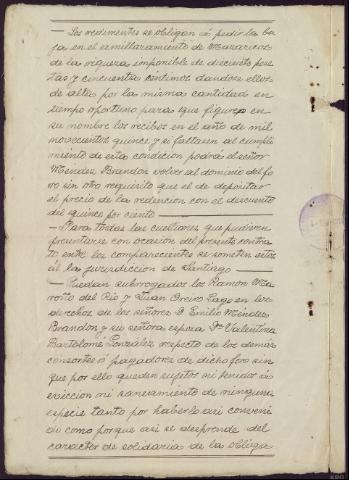 — Los redimentes se obligan á pedir la ba
ja en el amillaramiento de Mazaricos
de la riqueza imponible de diecisiete pese
tas y cincuenta céntimos dandose ellos
de alta por las misma cantidad en
tiempo oportuno para que figuren en
su nombre los recibos en el año de mil
novecientos quince y si faltasen al cumpli
miento de esta condicion podrá el señor
Méndez Brandon volver al dominio del fo
ro sin otro requisito que el de depositar
el precio de la redencion con el descuento
del quince por ciento
— Para todas las cuestiones que pudieren
presentarse con ocasion del presente contra
to entre los comparecientes se someten estos
á la jurisdiccion de Santiago
— Quedan subrogados los Ramón Ma
roño del Río y Juan Breijo Lago en los
derechos de los señores D. Emilio Méndez
Brandon y su señora esposa Dª Valentina
Bartolomé González respecto de los demás
consortes ó pagadores de dicho foro sin
que por ello queden sujetos ni tenidos á
eviccion ni saneamiento de ninguna
especie tanto por haberlo asi conveni
do como porque asi se desprende del
caracter de solidaria de la obliga